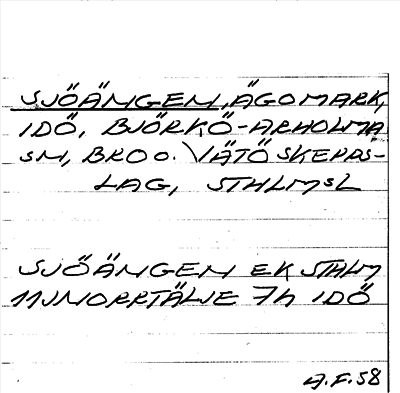 SJÖÄNGEN, ÄGOMARK,
IDÖ, BJÖRKÖ-ARHOLMA
SM, BRO O. VÄTÖ SKEPPS-
LAG, STHLMSL
SJÖÄNGEN EK STHLM
11J NORRTÄLJE 7h IDÖ
A.F.58